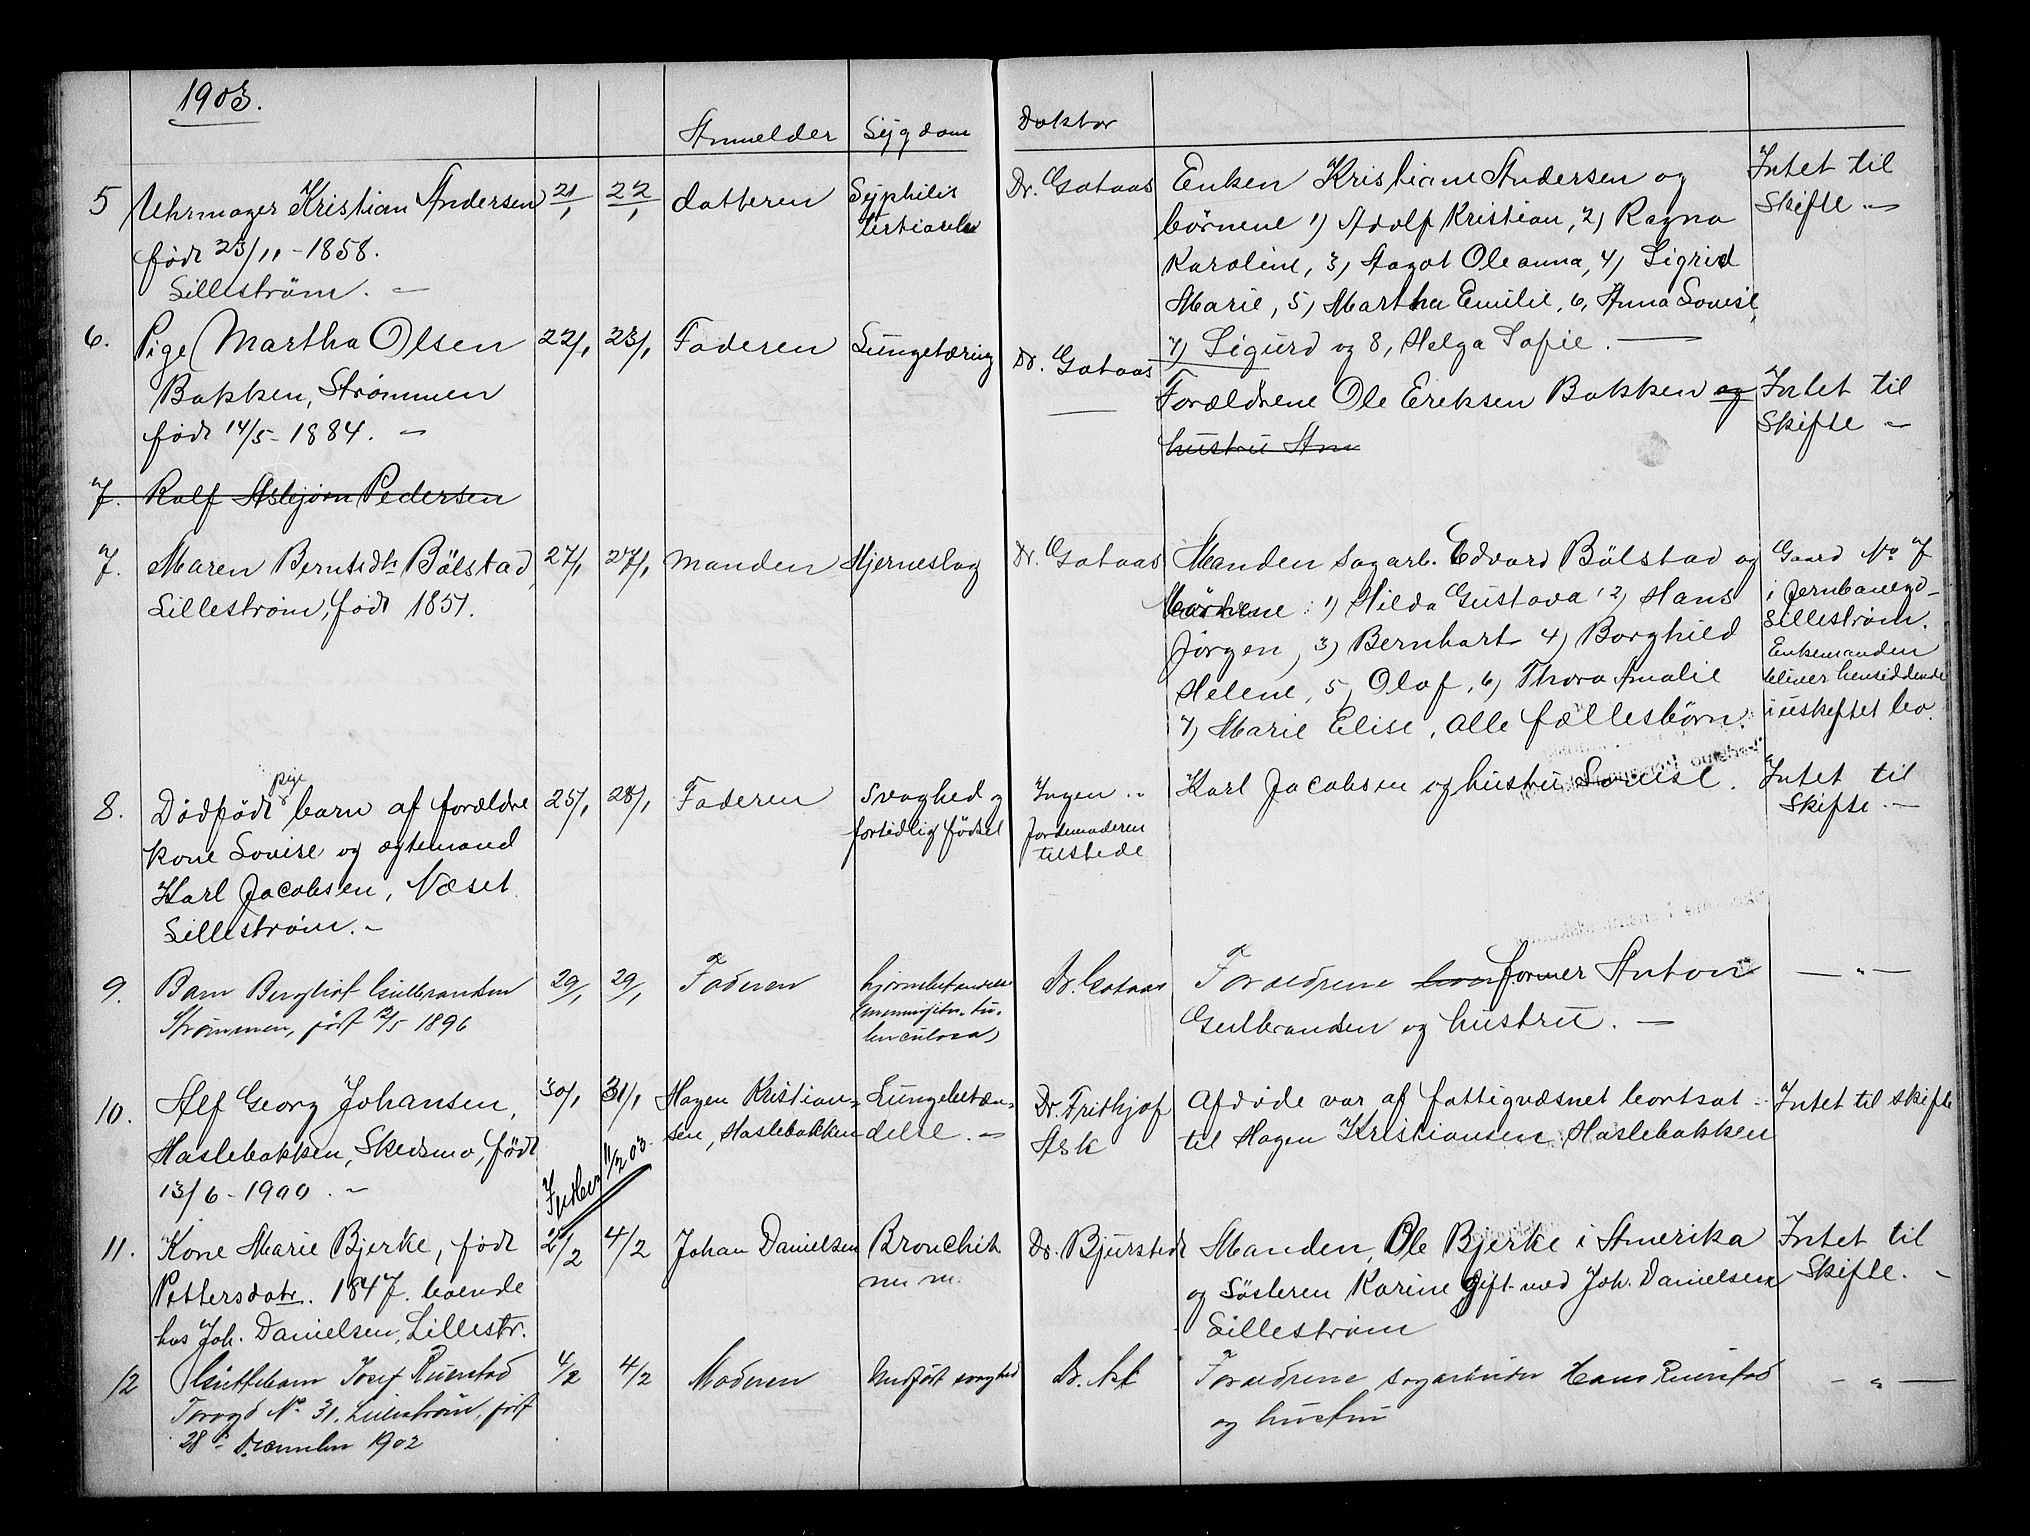 1903.
Anmelder Sygdom Doktor
5 Uhrmager Kristian Andersen 21/1 22/1 datteren Syphilis Dr. Gotaas Enken Kristiane Andersen og Intet til
født 23/11 - 1858. tertiaria børnene 1) Adolf Kristian, 2) Ragna Skifte. —
Lillestrøm. — Karoline, 3) Aagot Oleanna, 4) Sigrid
Marie, 5) Martha Emilie, 6, Anna Lovise,
7) Sigurd og 8, Helga Sofie. —
6. Pige Martha Olsen 22/1 23/1 Faderen Lungetæring Dr. Gotaas Forældrene Ole Eriksen Bakken og Intet til
Bakken, Strømmen — hustru Ann Skifte —
født 14/5 - 1884. —
7. Ralf Asbjørn Pedersen
7. Maren Berntsdtr Bölstad, 27/1 27/1 manden Hjerneslag Dr. Gotaas Manden sagarb. Edvard Bölstad og Gaard No 7
Lillestrøm, født 1851. børnene: 1) Hilda Gustava, 2) Hans i Jernbanegd.
Jørgen, 3) Bernhart 4) Borghild Lillestrøm.
Helene, 5, Olaf, 6) Thora Amalie Enkemanden
7) Marie Elise, alle fællesbörn. bliver hensiddende
i uskiftet bo.
8. Dødfødt pige barn af forældre 25/1 28/1 Faderen Svaghed og Ingen .. Karl Jacobsen og hustru Lovise. Intet til
kone Lovise og ægtemand fortidlig fødsel Jordemoderen Skifte. —
Karl Jacobsen, Næset tilstede
Lillestrøm. —
9. Barn Bergliot Gulbrandsen 29/1 29/1 Faderen hjernebetændelse Dr. Gotaas Forældrene former Anton — " —
Strømmen, født 12/5 1896 (meningitis tu- Gulbrandsen og hustru. —
berculosa)
10. Alf Georg Johansen, 30/1 31/1 Hagen Kristian- Lungebetæn- Dr. Frithjof Afdøde var af fattigvæsnet bortsat Intet til skifte
Haslebakken, Skedsmo, født sen, Haslebakken delse. — Ask til Hagen Kristiansen Haslebakken
13/6 - 1900. — 11/2 03.
11. Kone Marie Bjerke, født 2/2 4/2 Johan Danielsen Bronchit Dr. Bjurstedt Manden, Ole Bjerke i Amerika Intet til
Pettersdatr. 1847. boende og Søsteren Karine gift med Joh. Danielsen Skifte. —
hos Joh. Danielsen, Lillestr. Lillestrøm
12 Guttebarn Josef Ruenstad 4/2 4/2 Moderen Medfødt svaghed Dr. Ask Forældrene sagarbeider Hans Ruenstad — " —
Torvgd No 31. Lillestrøm, født og hustru
28 December 1902